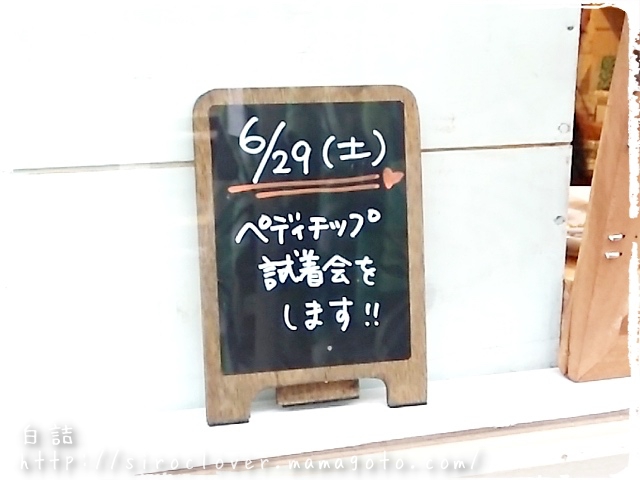 6/29(土)
ペディチップ
試着会を
します!!
白詰
http://siroclover.mamagoto.com/